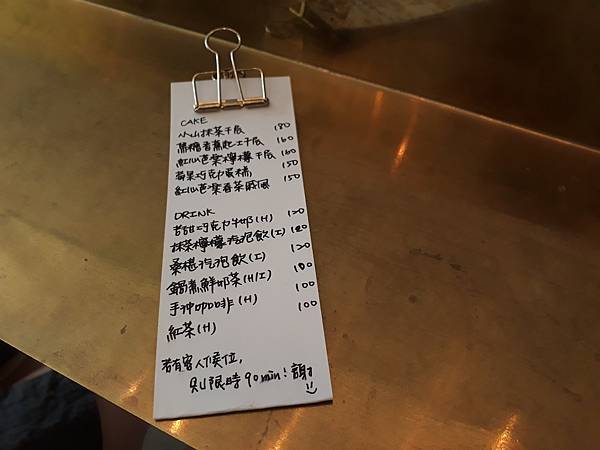 CAKE
小山抹茶千層 180
黑糖香蕉起士千層 160
紅心芭樂檸檬千層 160
蘋果巧克力蛋糕 150
紅心芭樂春茶戚風 150
DRINK
苦甜巧克力牛奶(H) 120
抹茶檸檬汽泡飲(I) 120
桑椹汽泡飲(I) 120
鍋煮鮮奶茶(H/I) 180
手沖咖啡(H) 100
紅茶(H) 100
若有客人候位,
則限時90min!謝